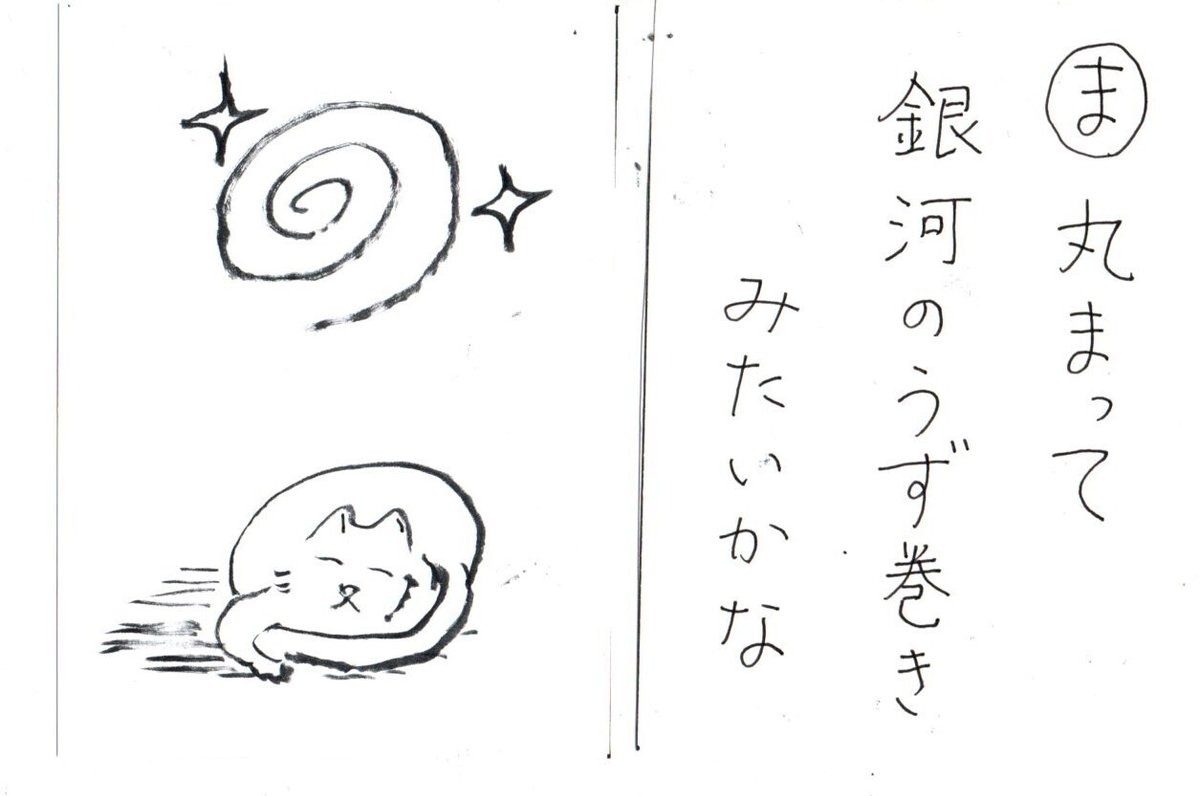 ま 丸まって
銀河のうず巻き
みたいかな